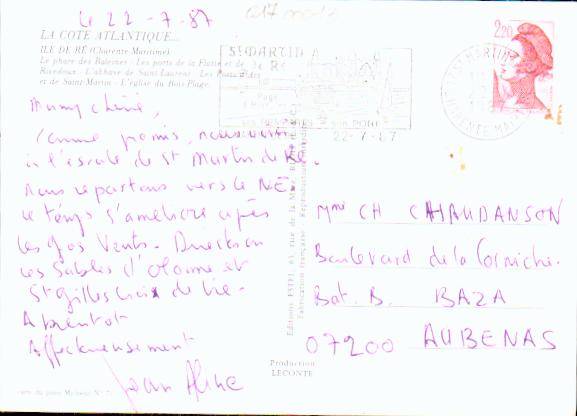 Le 22-7-87
LA COTE ATLANTIQUE...
ILE DE RÉ (Charente-Maritime)
Le phare des Baleines - Les ports de la Flotte et de
Rivedoux - L'abbaye de Saint-Laurent - Les Ports d'Ars
et de Saint-Martin - L'église du Bois Plage.
Mamy chérie,
comme promis, nous
à l'escale de St Martin de Ré.
nous repartons vers le NE.
le temps s'améliore après
les gros vents. Direction
les Sables d'Olonne et
St Gilles Croix de Vie.
A bientôt
Affectueusement
Jean
St MARTIN
de RÉ
SON PORT
22-7-87
2,20
Mme CH CHAUDANSON
Boulevard de la Corniche.
Bat. B. BAZA
07200 AUBENAS
Editions ESTEL, 63, rue de la
Fabrication française Reproduction
Production
LECONTE